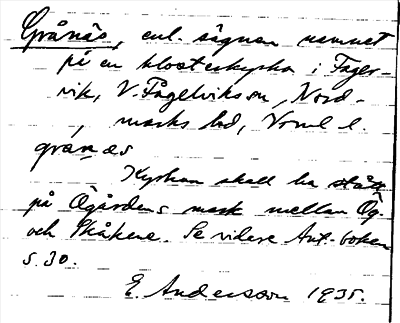 Grånäs, enl. sägnen namnet
på en klosterkyrka i Fager-
vik, V. Fågelviks sn, Nord-
marks hd, Vrml l.
grånäs
Kyrkan skall ha stått
på Ögårdens mark mellan Ög.
och Skåkene. Se vidare Ant.-boken
s. 30.
E. Andersson 1935.